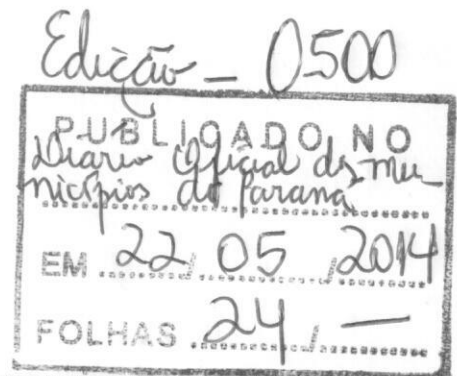 Edição - 0500
PUBLICADO NO
Diario Oficial dos mu-
nicípios do Paraná
EM 22/05/2014
FOLHAS 24/—